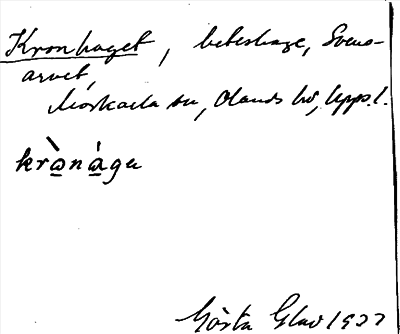 Kronhaget, beteshage, Svens-
arvet,
Morkarla sn, Olands hd, Uppl.
kròn̲ága
Gösta Glad 1933